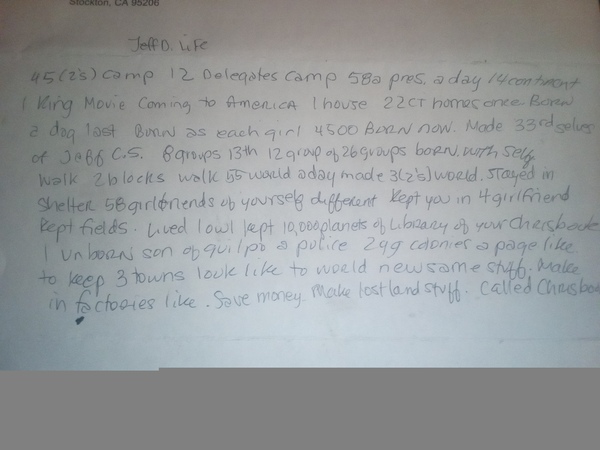 Stockton, CA 95206
Jeff D. Life
45(2's) camp 12 Delegates Camp 582 pres. a day 14 continent
1 King Movie Coming to America 1 house 22CT homes once. Born
2 dog last Born as each girl 4500 Born now. Made 33rd selves
of Jeff C.S. 8 groups 13th 12 group of 26 groups born. with self
walk 2 blocks walk 55 world a day made 3(2's) world. stayed in
shelter 58 girlfriends of yourself different kept you in 4 girlfriend
kept fields. Lived 1 owl kept 10,000 planets of Library of your
1 unborn son of a police 299 colonies a page like
to keep 3 towns look like to world new same stuff. Make
in factories like. Save money. Make lost land stuff. Called